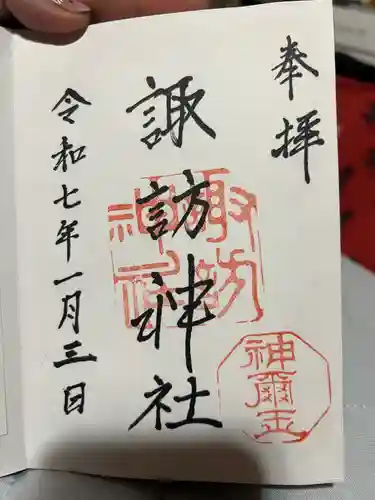 奉拝
諏訪神社
令和七年一月三日
諏訪
神社
神璽